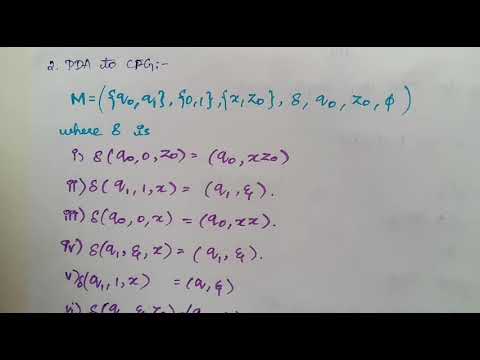 2. PDA to CFG:-
M = ({q0, q1}, {0,1}, {x, z0}, δ, q0, z0, ϕ)
where δ is
i) δ(q0, 0, z0) = (q0, xz0)
ii) δ(q1, 1, x) = (q1, ε).
iii) δ(q0, 0, x) = (q0, xx).
iv) δ(q1, ε, x) = (q1, ε).
v) δ(q1, 1, x) = (q, ε)
vi) δ(q ε z0)